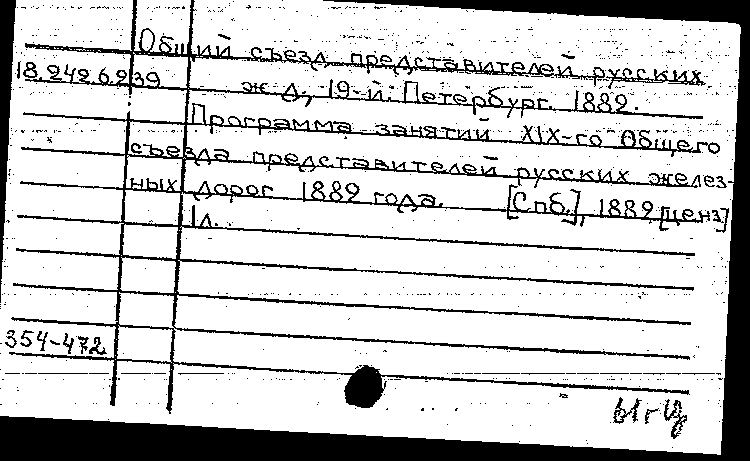 Общий съезд представителей русских
18.242.6.239 ж. д., 19-й. Петербург. 1882.
Программа занятий XIX-го Общего
съезда представителей русских желез-
ных дорог 1882 года. [Спб.], 1882 [ценз]
1л.
354-472